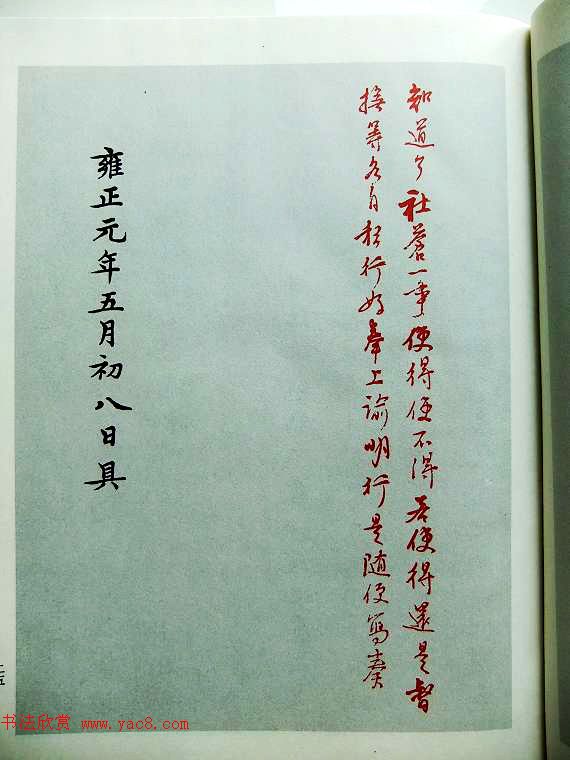 知道了社蒼一事使得使不得若使得還是督
撫等各自私行好奉上諭明行是随便寫奏
雍正元年五月初八日具
书法欣赏 www.yac8.com